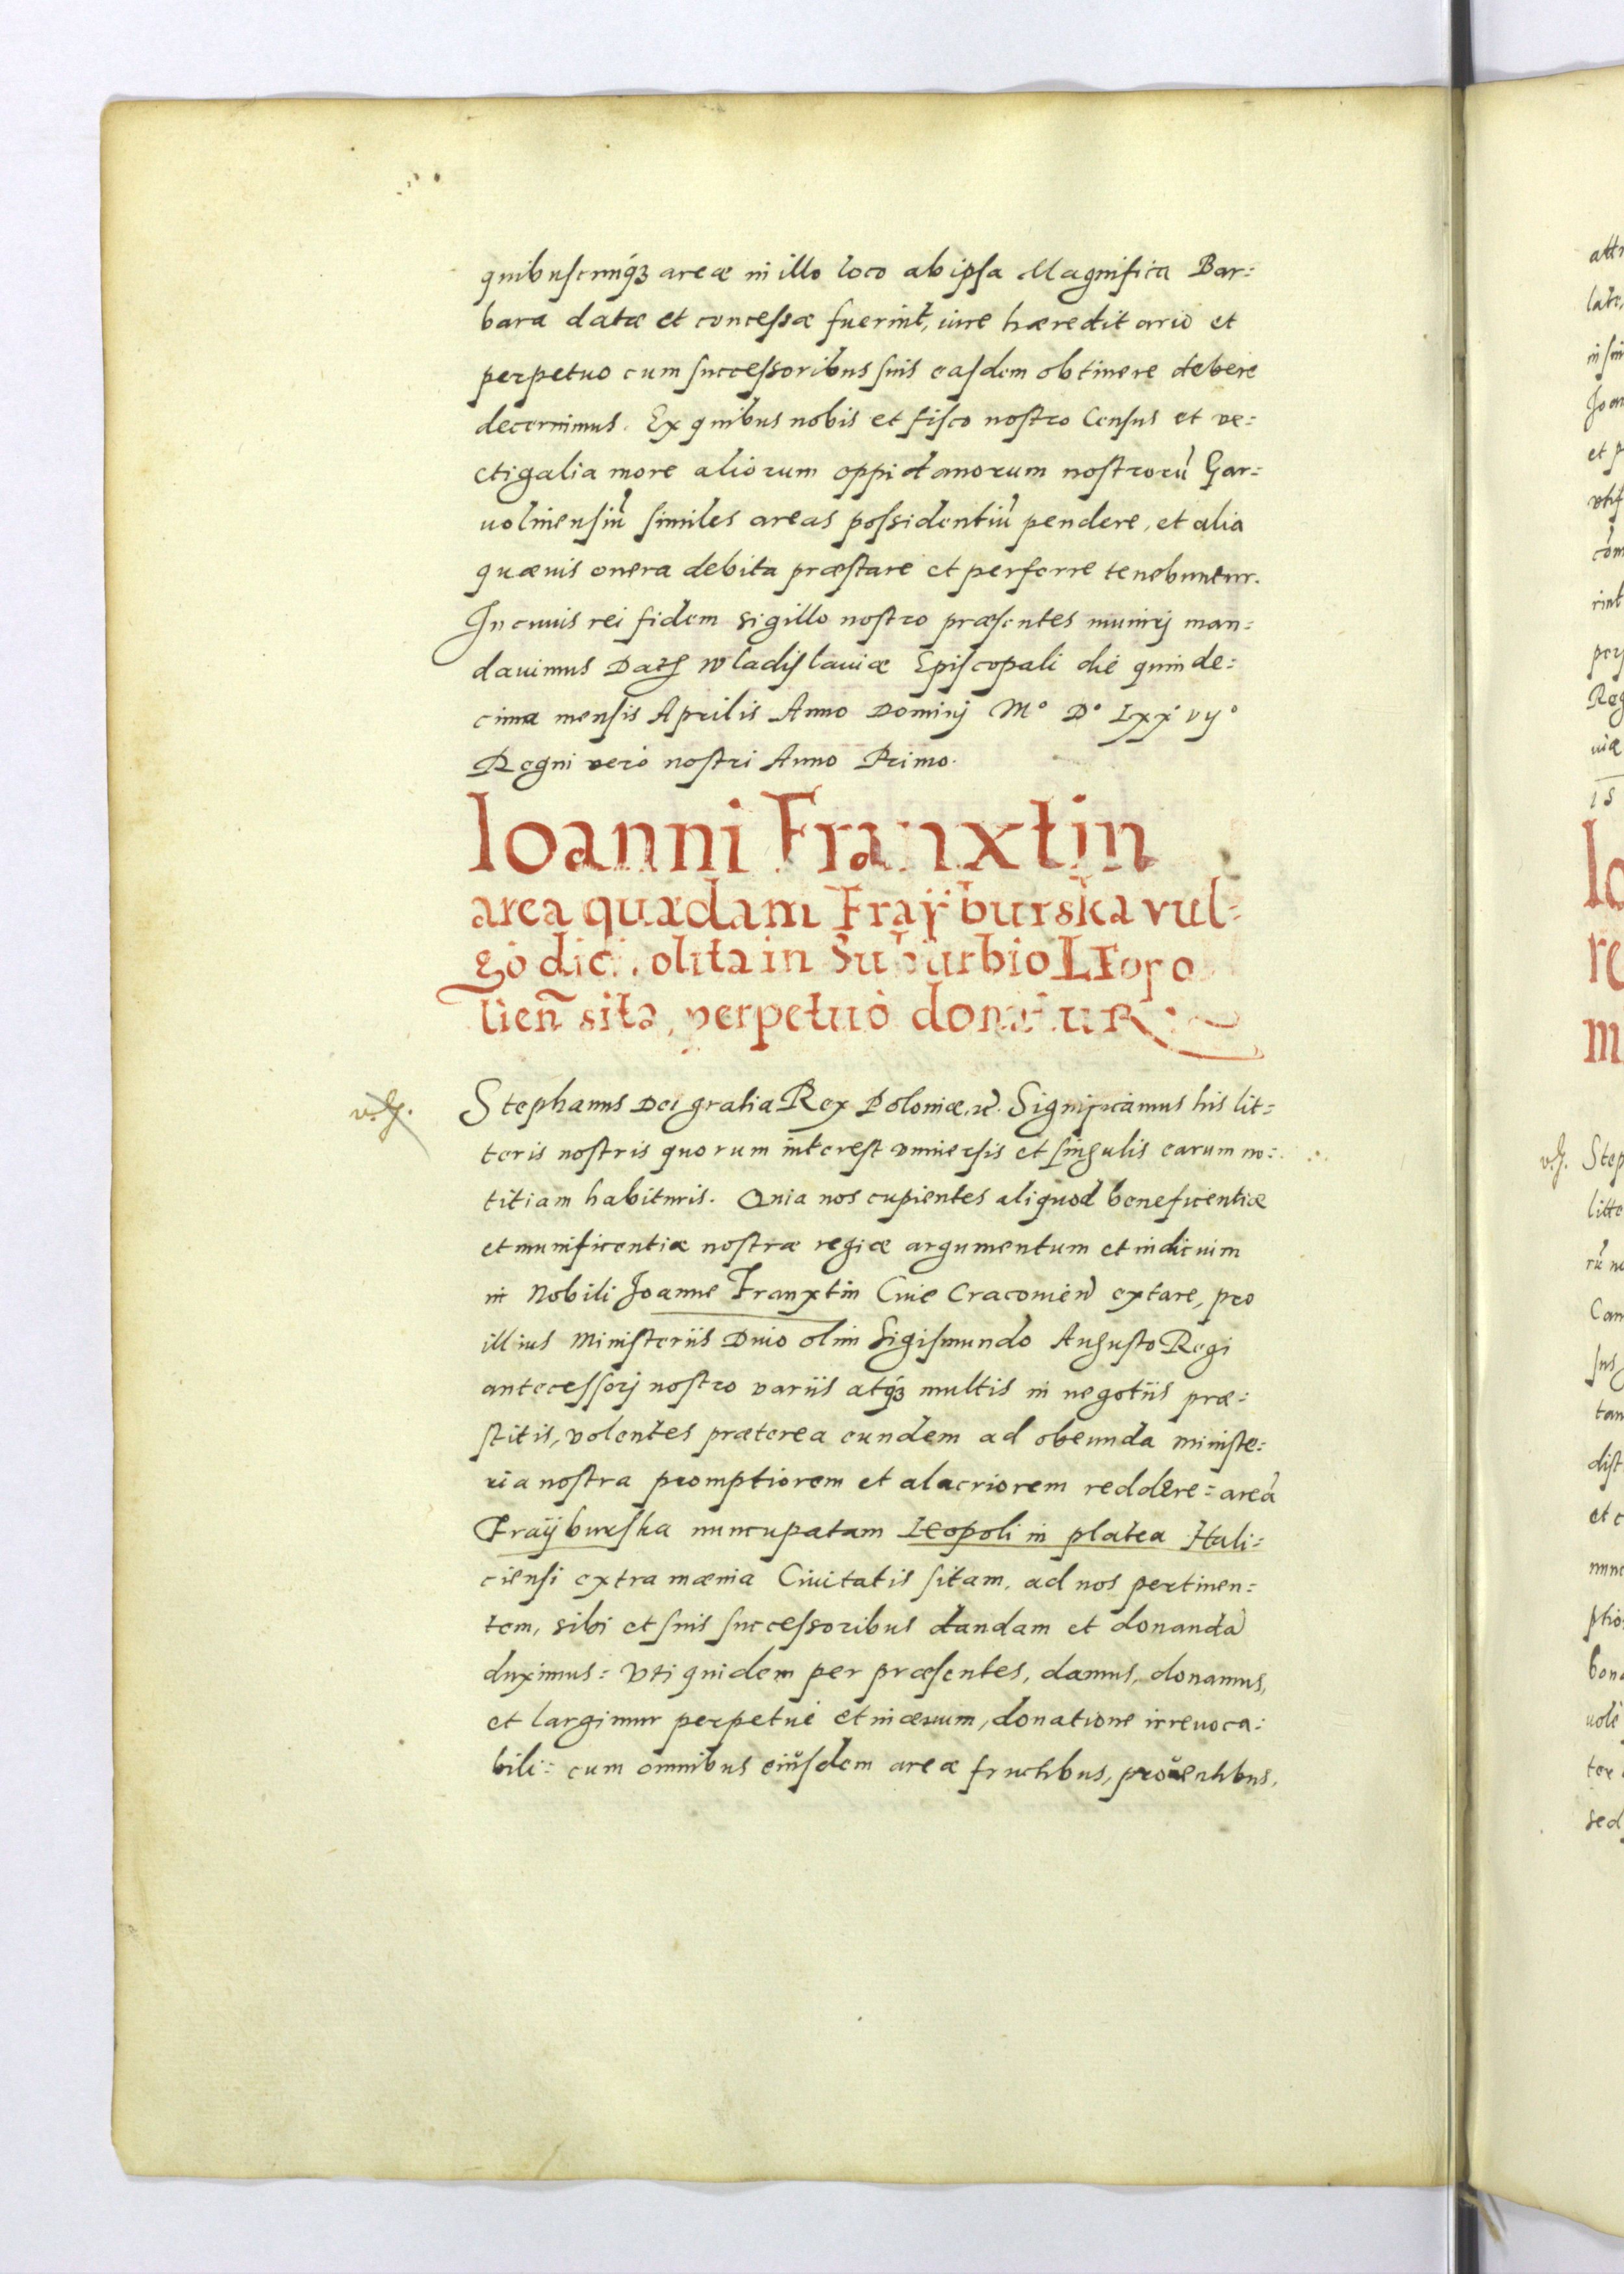 quibuscunq́ꝫ areæ in illo loco ab ipsa Magnifica Bar=
bara datæ et concessæ fuerint, iure hæreditario et
perpetuo cum successoribus suis easdem obtinere debere
decernimus. Ex quibus nobis et fisco nostro Census et ve=
ctigalia more aliorum oppidanorum nostrorũ Gar=
uolinensiũ similes areas possidentiũ pendere, et alia
quæuis onera debita præstare et perferre tenebuntur.
In cuius rei fidem sigillo nostro præsentes munirj man=
dauimus Datꝭ Wladislauiæ Episcopali die quinde=
cima mensis Aprilis Anno Dominj M° D° Lxx vij°
Regni verò nostri Anno Primo.
Ioanni Franxtin
area quædam Fraÿburska vul=
gò dicta olita in Suburbio LEopo
lien̄ sita, perpetuò donatuR
v.g.
Stephanus Dei gratia Rex Poloniæ, ꝛc̃. Significamus his lit=
teris nostris quorum interest vniuersis et singulis earum no=
titiam habituris. Quia nos cupientes aliquod beneficentiæ
et munificentiæ nostræ regiæ argumentum et indicium
in Nobili Joanne Franxtin Ciue Cracouien̄ extare, pro
illius Ministeriis Diuo olim Sigismundo Augusto Regi
antecessorj nostro variis atq́ꝫ multis in negotiis præ=
stitis, volentes præterea eundem ad obeunda ministe=
ria nostra promptiorem et alacriorem reddere= areã
Fraÿburska nuncupatam Leopoli in platea Hali=
ciensi extra mænia Ciuitatis sitam, ad nos pertinen=
tem, sibi et suis successoribus dandam et donandã
duximus= Vti quidem per præsentes, damus, donamus,
et largimur perpetuè et in æuum, donatione irreuoca=
bili= cum omnibus eiusdem areæ fructibus, prouentibus,